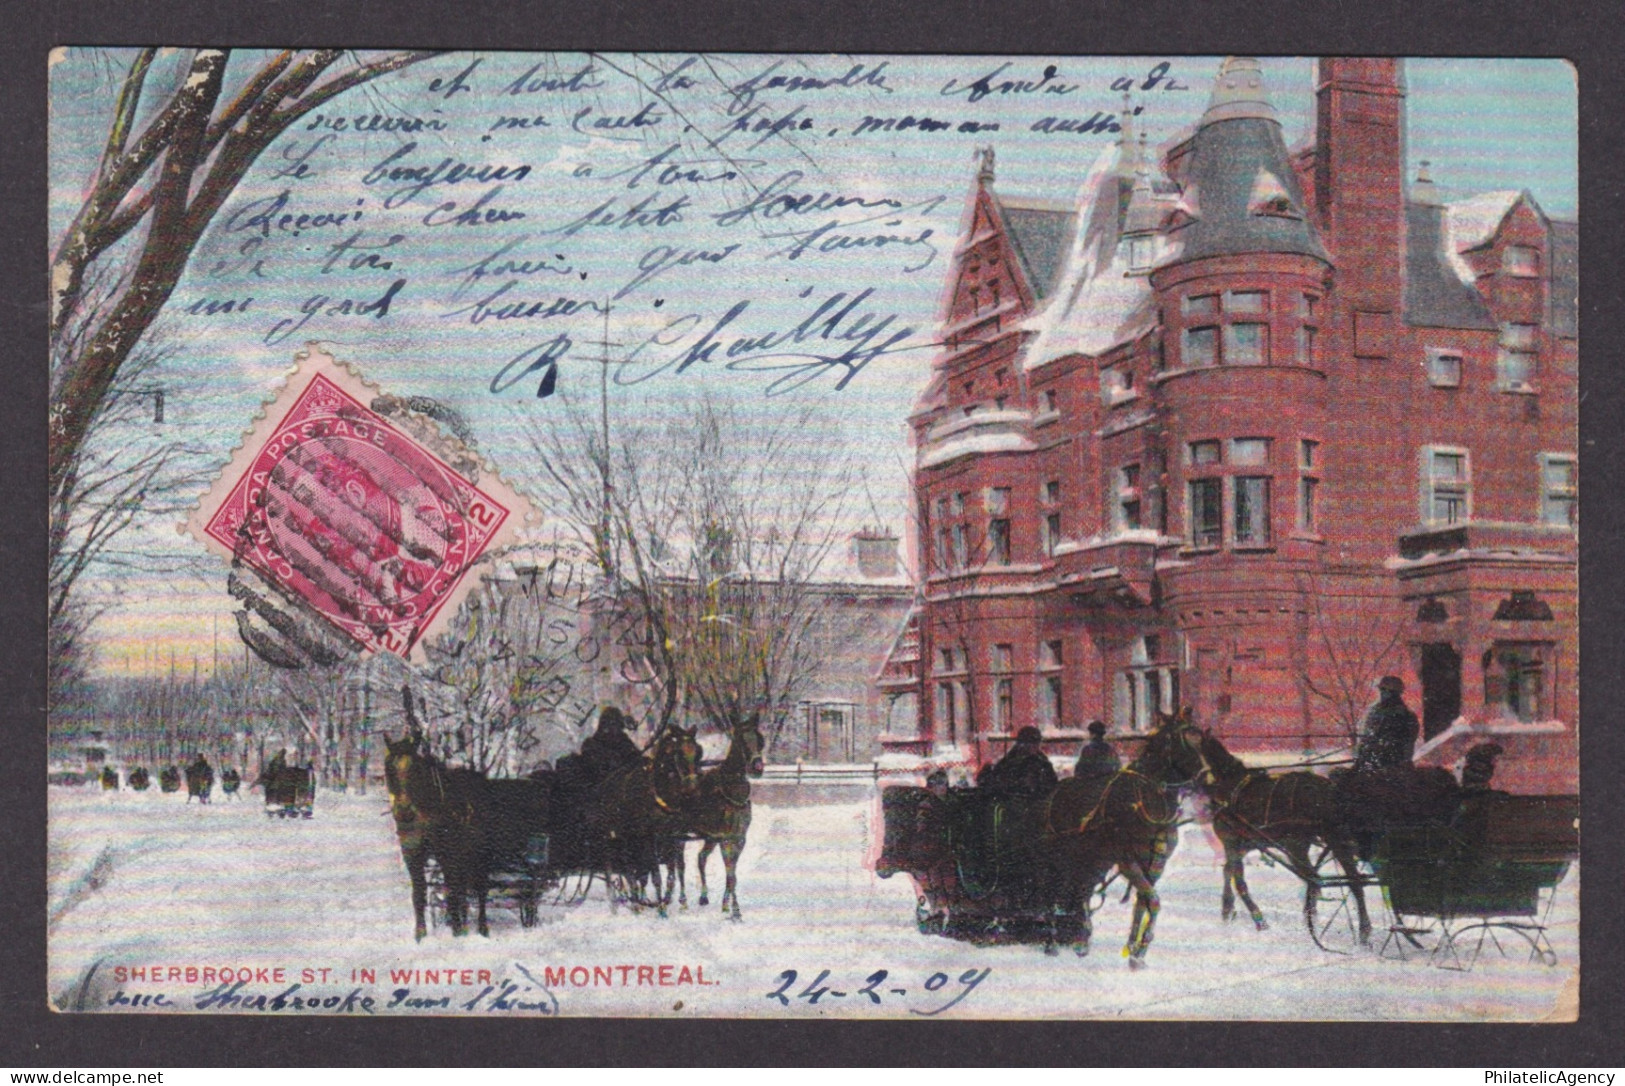 et toute la famille André a dû
recevoir ma carte, papa, maman aussi
Le bonjours a tous
Reçoi cher petite Soeur
un gros baiser
R. Chailly
CANADA POSTAGE
TWO CENTS
2 2
MONTREAL
SHERBROOKE ST. IN WINTER, MONTREAL.
rue Sherbrooke dans l'hiver
24-2-09
delcampe.net
PhilatelicAgency